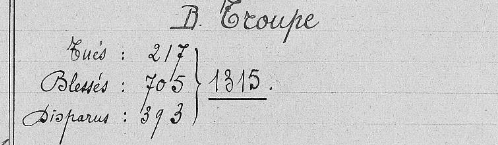 B. Troupe
Tués : 217
Blessés : 705 } 1315.
Disparus : 393